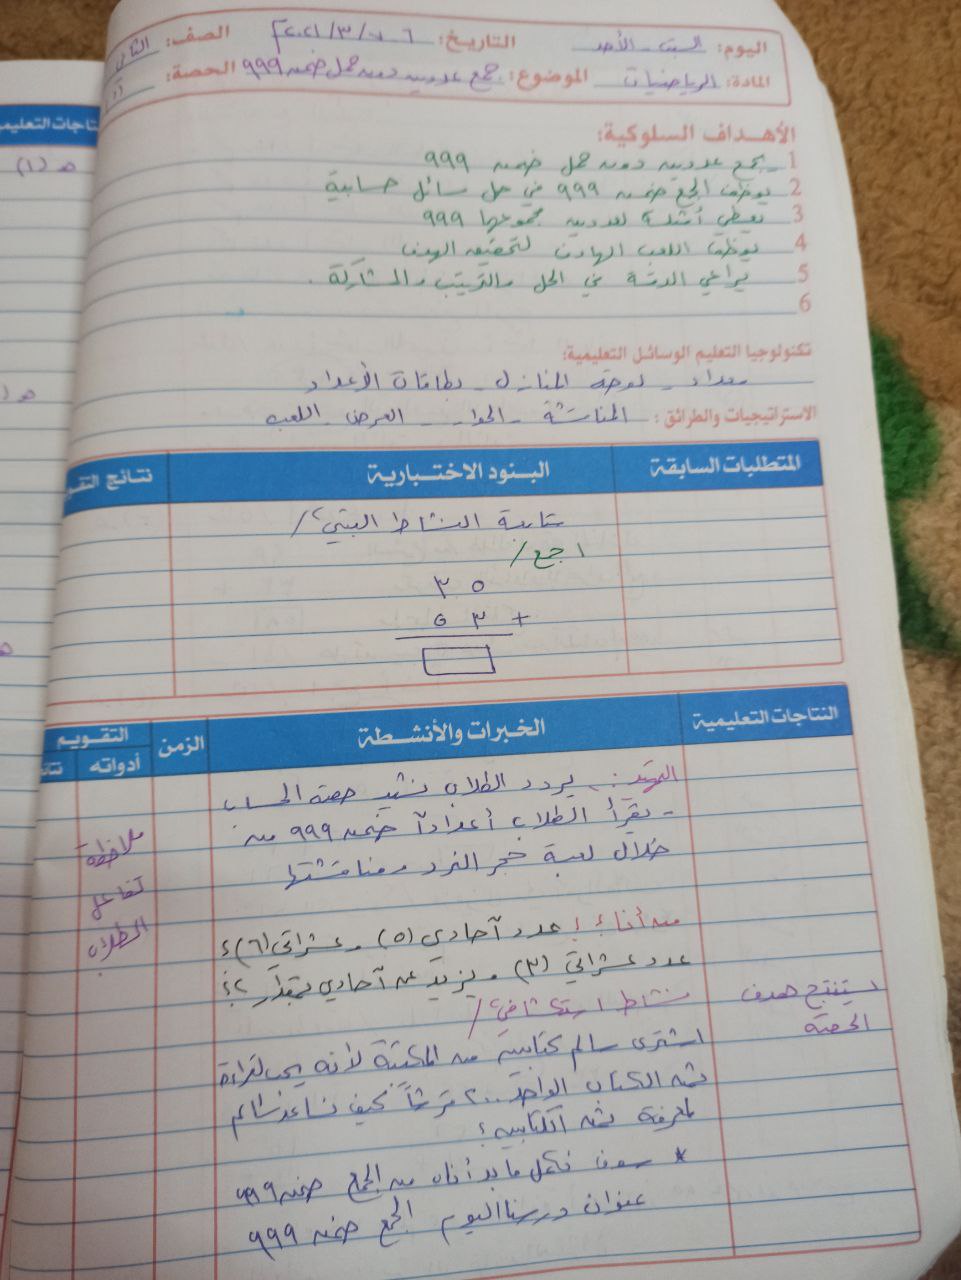 اليوم: السبت - الأحد التاريخ: ٦ - ٧ / ٣ / ٢٠٢١ الصف: الثاني
المادة: الرياضيات الموضوع: جمع عددين دون حمل ضمن ٩٩٩ الحصة:
الأهداف السلوكية:
1 يجمع عددين دون حمل ضمن ٩٩٩
2 يوظف الجمع ضمن ٩٩٩ في حل مسائل حسابية
3 يعطي أمثلة لعددين مجموعها ٩٩٩
4 يوظف اللعب الهادف لتحقيق الهدف
5 يراعي الدقة في الحل والترتيب والمشاركة .
6
تكنولوجيا التعليم الوسائل التعليمية:
معداد - لوحة المنازل - بطاقات الأعداد
الاستراتيجيات والطرائق : المناقشة - الحوار - العرض - اللعب
المتطلبات السابقة البنود الاختبارية نتائج التقو
متابعة النشاط البيتي /
اجمع /
٣ ٥
٥ ٣ +
النتاجات التعليمية الخبرات والأنشطة الزمن التقويم
أدواته نتا
التهيئة: يردد الطلاب نشيد حصة الحساب
- يقرأ الطلاب أعداداً ضمن ٩٩٩ من
خلال لعبة حجر النرد ومناقشتها
ملاحظة
تفاعل
الطلاب
من أنا؟ عدد آحادي (٥) وعشراتي (٦)؟
عدد عشراتي (٣) ويزيد عن آحادي بمقدار ٢؟
يستنتج هدف
الحصة
نشاط استكشافي /
اشترى سالم كتابين من المكتبة لأنه يحب القراءة
ثمن الكتاب الواحد ٢٠٠ قرشاً كيف نساعد سالم
لمعرفة ثمن الكتابين؟
* سوف نكمل ما بدأناه من الجمع ضمن ٩٩٩
عنوان درسنا اليوم الجمع ضمن ٩٩٩
نتاجات التعليمي
ص (١)